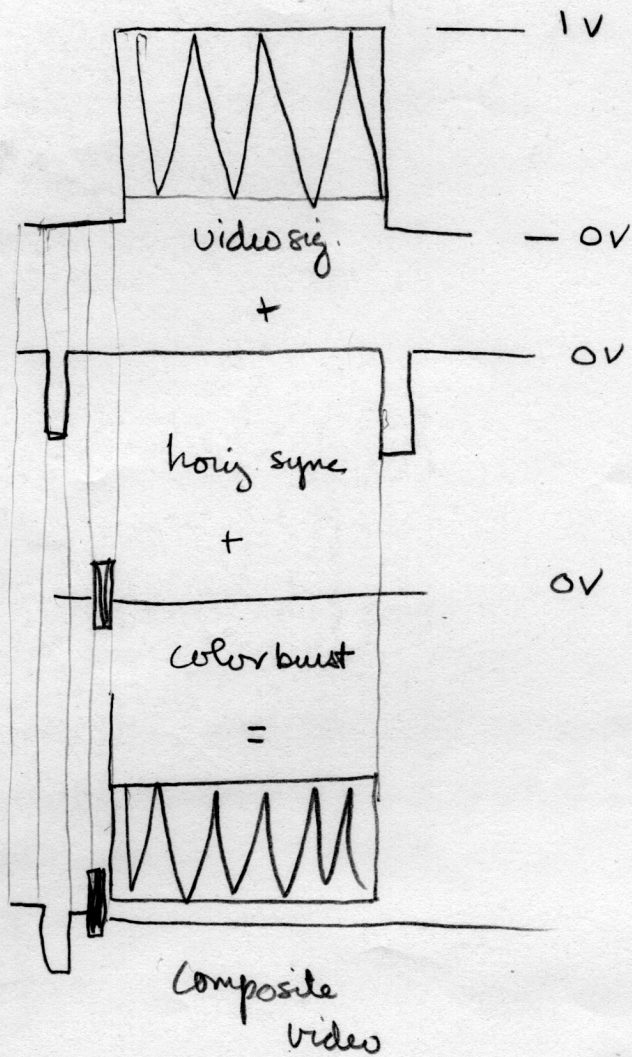 1V
video sig.
— 0V
+
0V
horiz sync
+
0V
color burst
=
composite
video